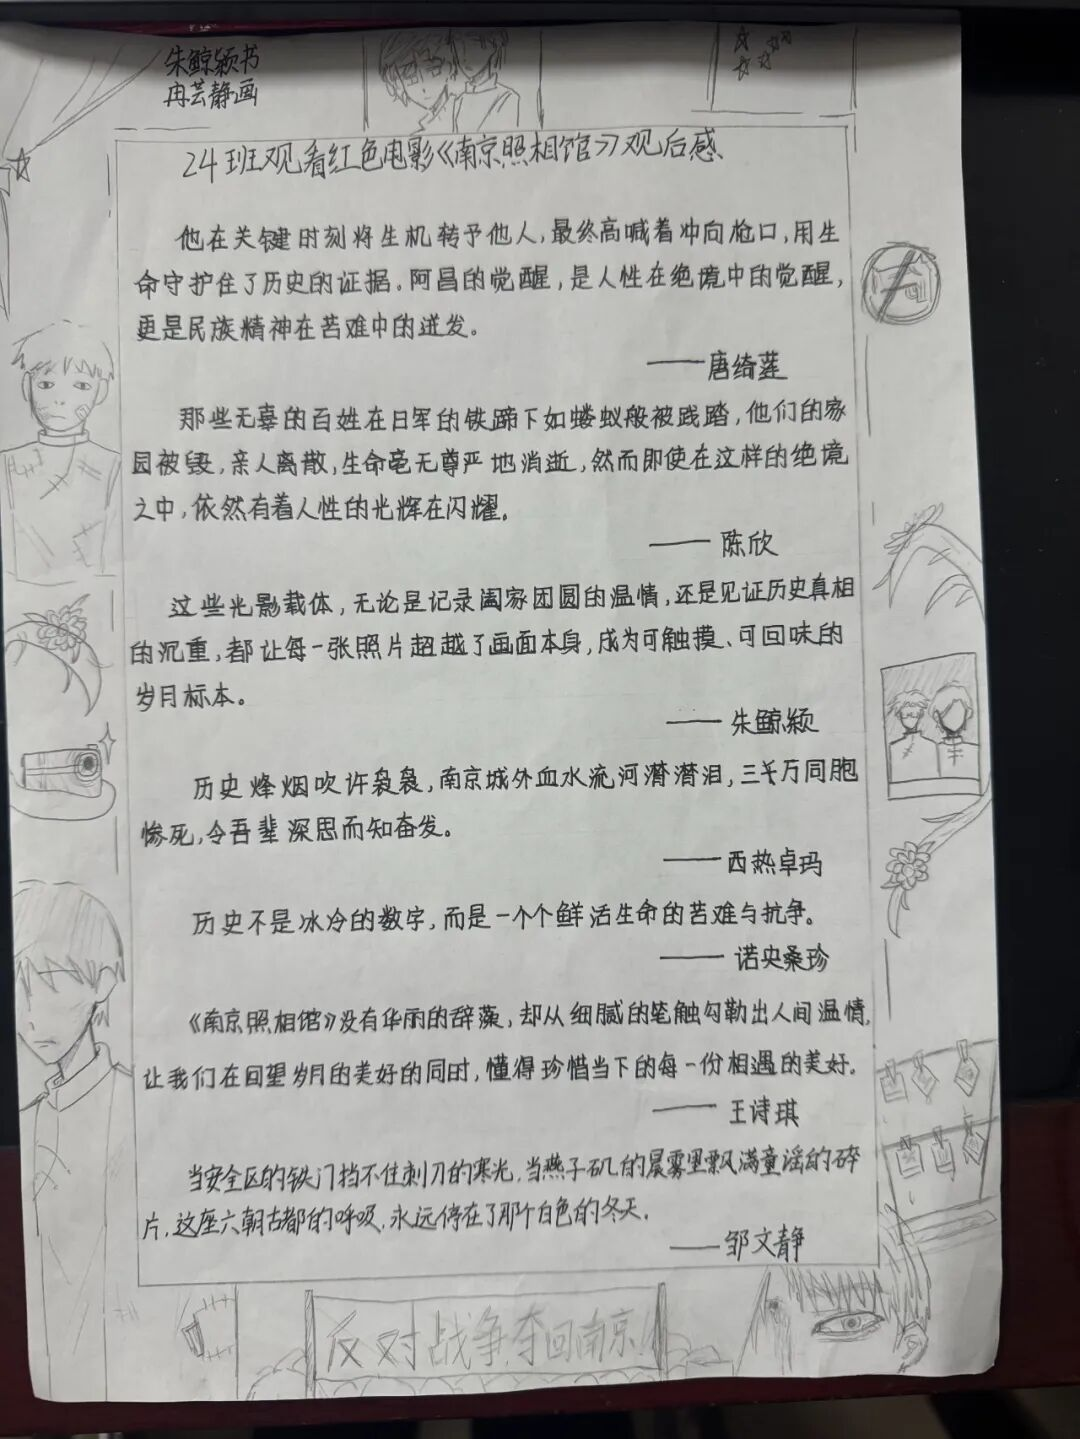 朱鲸颖书
冉芸静画
24班观看红色电影《南京照相馆》观后感
他在关键时刻将生机转予他人,最终高喊着冲向枪口,用生
命守护住了历史的证据。阿昌的觉醒,是人性在绝境中的觉醒,
更是民族精神在苦难中的迸发。
——唐绮莲
那些无辜的百姓在日军的铁蹄下如蝼蚁般被践踏,他们的家
园被毁,亲人离散,生命毫无尊严地消逝,然而即使在这样的绝境
之中,依然有着人性的光辉在闪耀。
——陈欣
这些光影载体,无论是记录阖家团圆的温情,还是见证历史真相
的沉重,都让每一张照片超越了画面本身,成为可触摸、可回味的
岁月标本。
——朱鲸颖
历史烽烟吹许袅袅,南京城外血水流河潸潸泪,三十万同胞
惨死,令吾辈深思而知奋发。
——西热卓玛
历史不是冰冷的数字,而是一个个鲜活生命的苦难与抗争。
——诺央桑珍
《南京照相馆》没有华丽的辞藻,却从细腻的笔触勾勒出人间温情,
让我们在回望岁月的美好的同时,懂得珍惜当下的每一份相遇的美好。
——王诗琪
当安全区的铁门挡不住刺刀的寒光,当燕子矶的晨雾里飘满童谣的碎
片,这座六朝古都的呼吸,永远停在了那个白色的冬天。
——邹文静
反对战争,夺回南京!